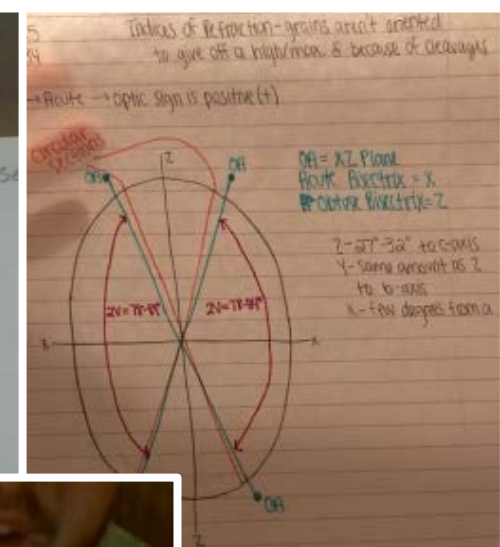 5
Indices of Refraction - grains aren't oriented
34
to give off a high/max. δ because of cleavages
→ Acute → optic sign is positive (+)
circular
sections
Z
OA
OA
OA = XZ Plane
Acute Bisectrix = X
Obtuse Bisectrix = Z
se
Z-27°-32° to c-axis
Y-same amount as Z
to b-axis
X-few degrees from a
2V=78-
2V=78-
X
X
OA
Z